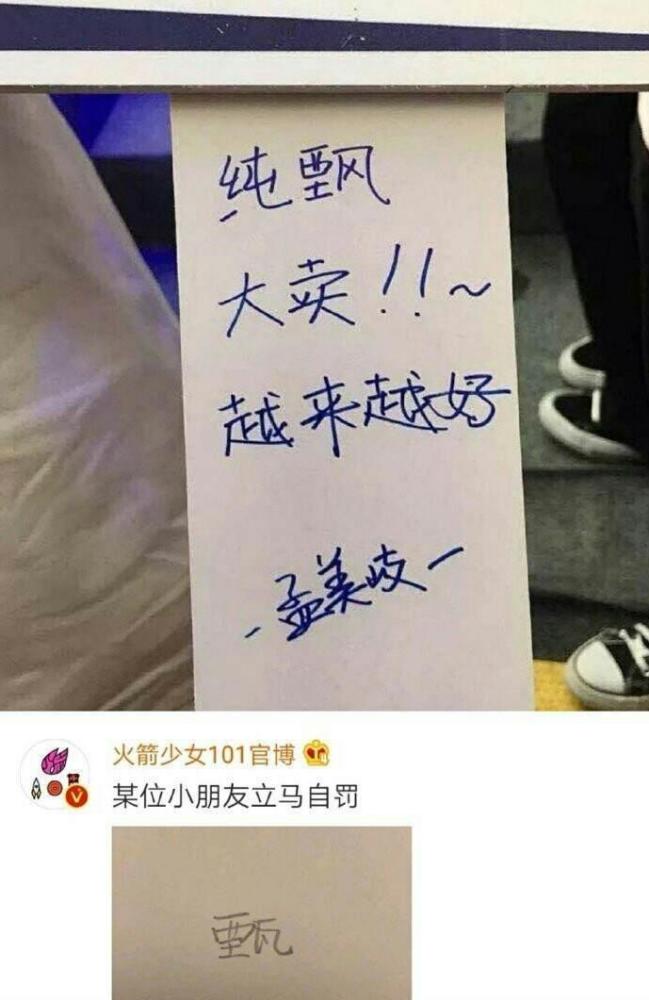 纯
大卖!!~
越来越好
-孟美岐-
火箭少女101官博
某位小朋友立马自罚
甄